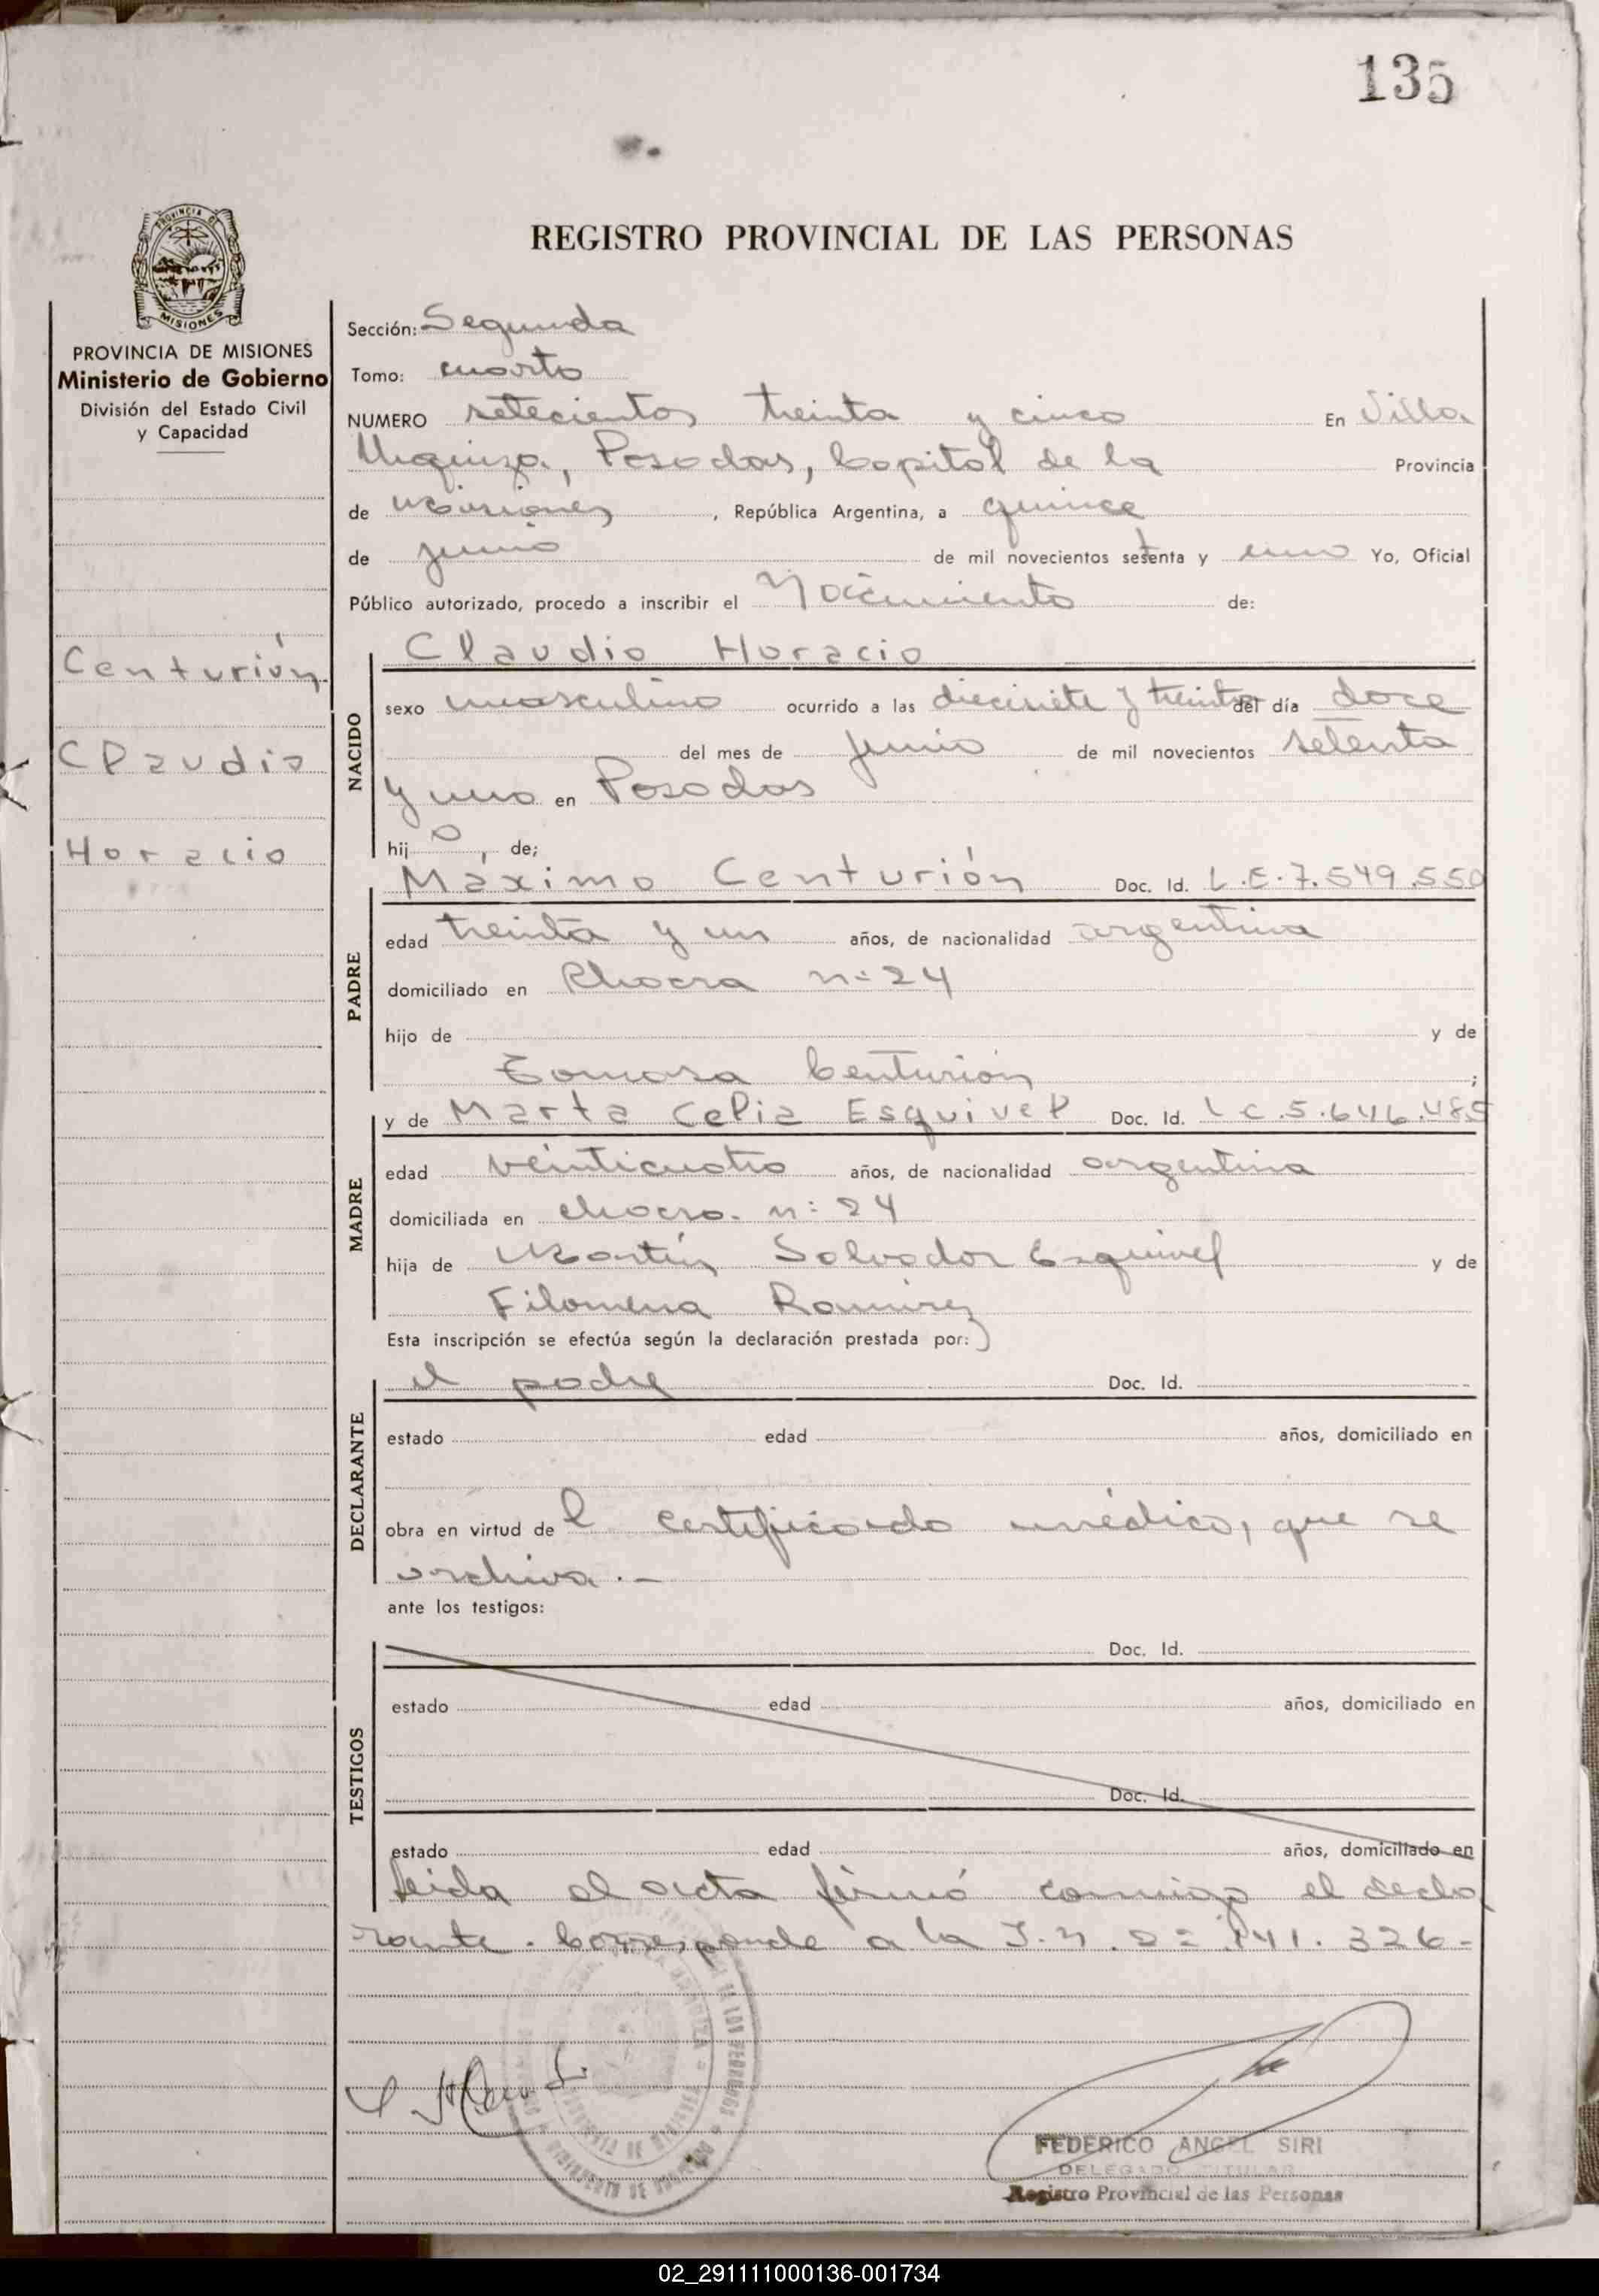 135
PROVINCIA DE
MISIONES
REGISTRO PROVINCIAL DE LAS PERSONAS
PROVINCIA DE MISIONES
Ministerio de Gobierno
División del Estado Civil
y Capacidad
Centurión
Claudio
Horacio
Sección: Segunda
Tomo: cuarto
NUMERO setecientos treinta y cinco En Villa
Urquiza, Posadas, Capital de la Provincia
de Misiones, República Argentina, a quince
de junio de mil novecientos setenta y uno Yo, Oficial
Público autorizado, procedo a inscribir el Nacimiento de:
Claudio Horacio
NACIDO
sexo masculino ocurrido a las diecisiete y treinta del día doce
del mes de junio de mil novecientos setenta
y uno en Posadas
hijo, de;
Máximo Centurión Doc. Id. L.E.7.549.550
PADRE
edad treinta y un años, de nacionalidad argentina
domiciliado en Chacra n:24
hijo de y de
Tomasa Centurión;
y de Marta Celia Esquivel Doc. Id. L C.5.646.485
MADRE
edad veinticuatro años, de nacionalidad argentina
domiciliada en chacra. n:24
hija de Martín Salvador Esquivel y de
Filomena Ramirez
Esta inscripción se efectúa según la declaración prestada por:
el padre Doc. Id.
DECLARANTE
estado edad años, domiciliado en
obra en virtud del certificado médico, que se
archiva.-
ante los testigos:
Doc. Id.
TESTIGOS
estado edad años, domiciliado en
Doc. Id.
estado edad años, domiciliado en
Leida el acta firmó conmigo el decla
rante. Corresponde a la
FEDERICO ANGEL SIRI
DELEGADO TITULAR
Registro Provincial de las Personas
02_291111000136-001734